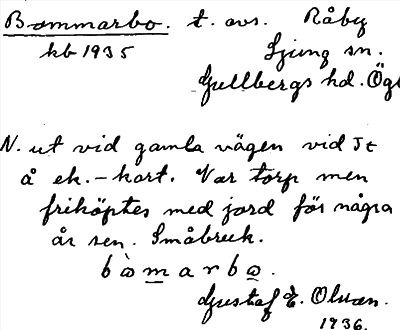 Bommarbo. t. avs. Råby
kb 1935 Ljung sn.
Gullbergs hd. Ögl
N. ut vid gamla vägen vid It
å ek. - kart. Var torp men
friköptes med jord för några
år sen. Småbruk.
bòmarbo.
Gustaf E. Olsson.
1936.